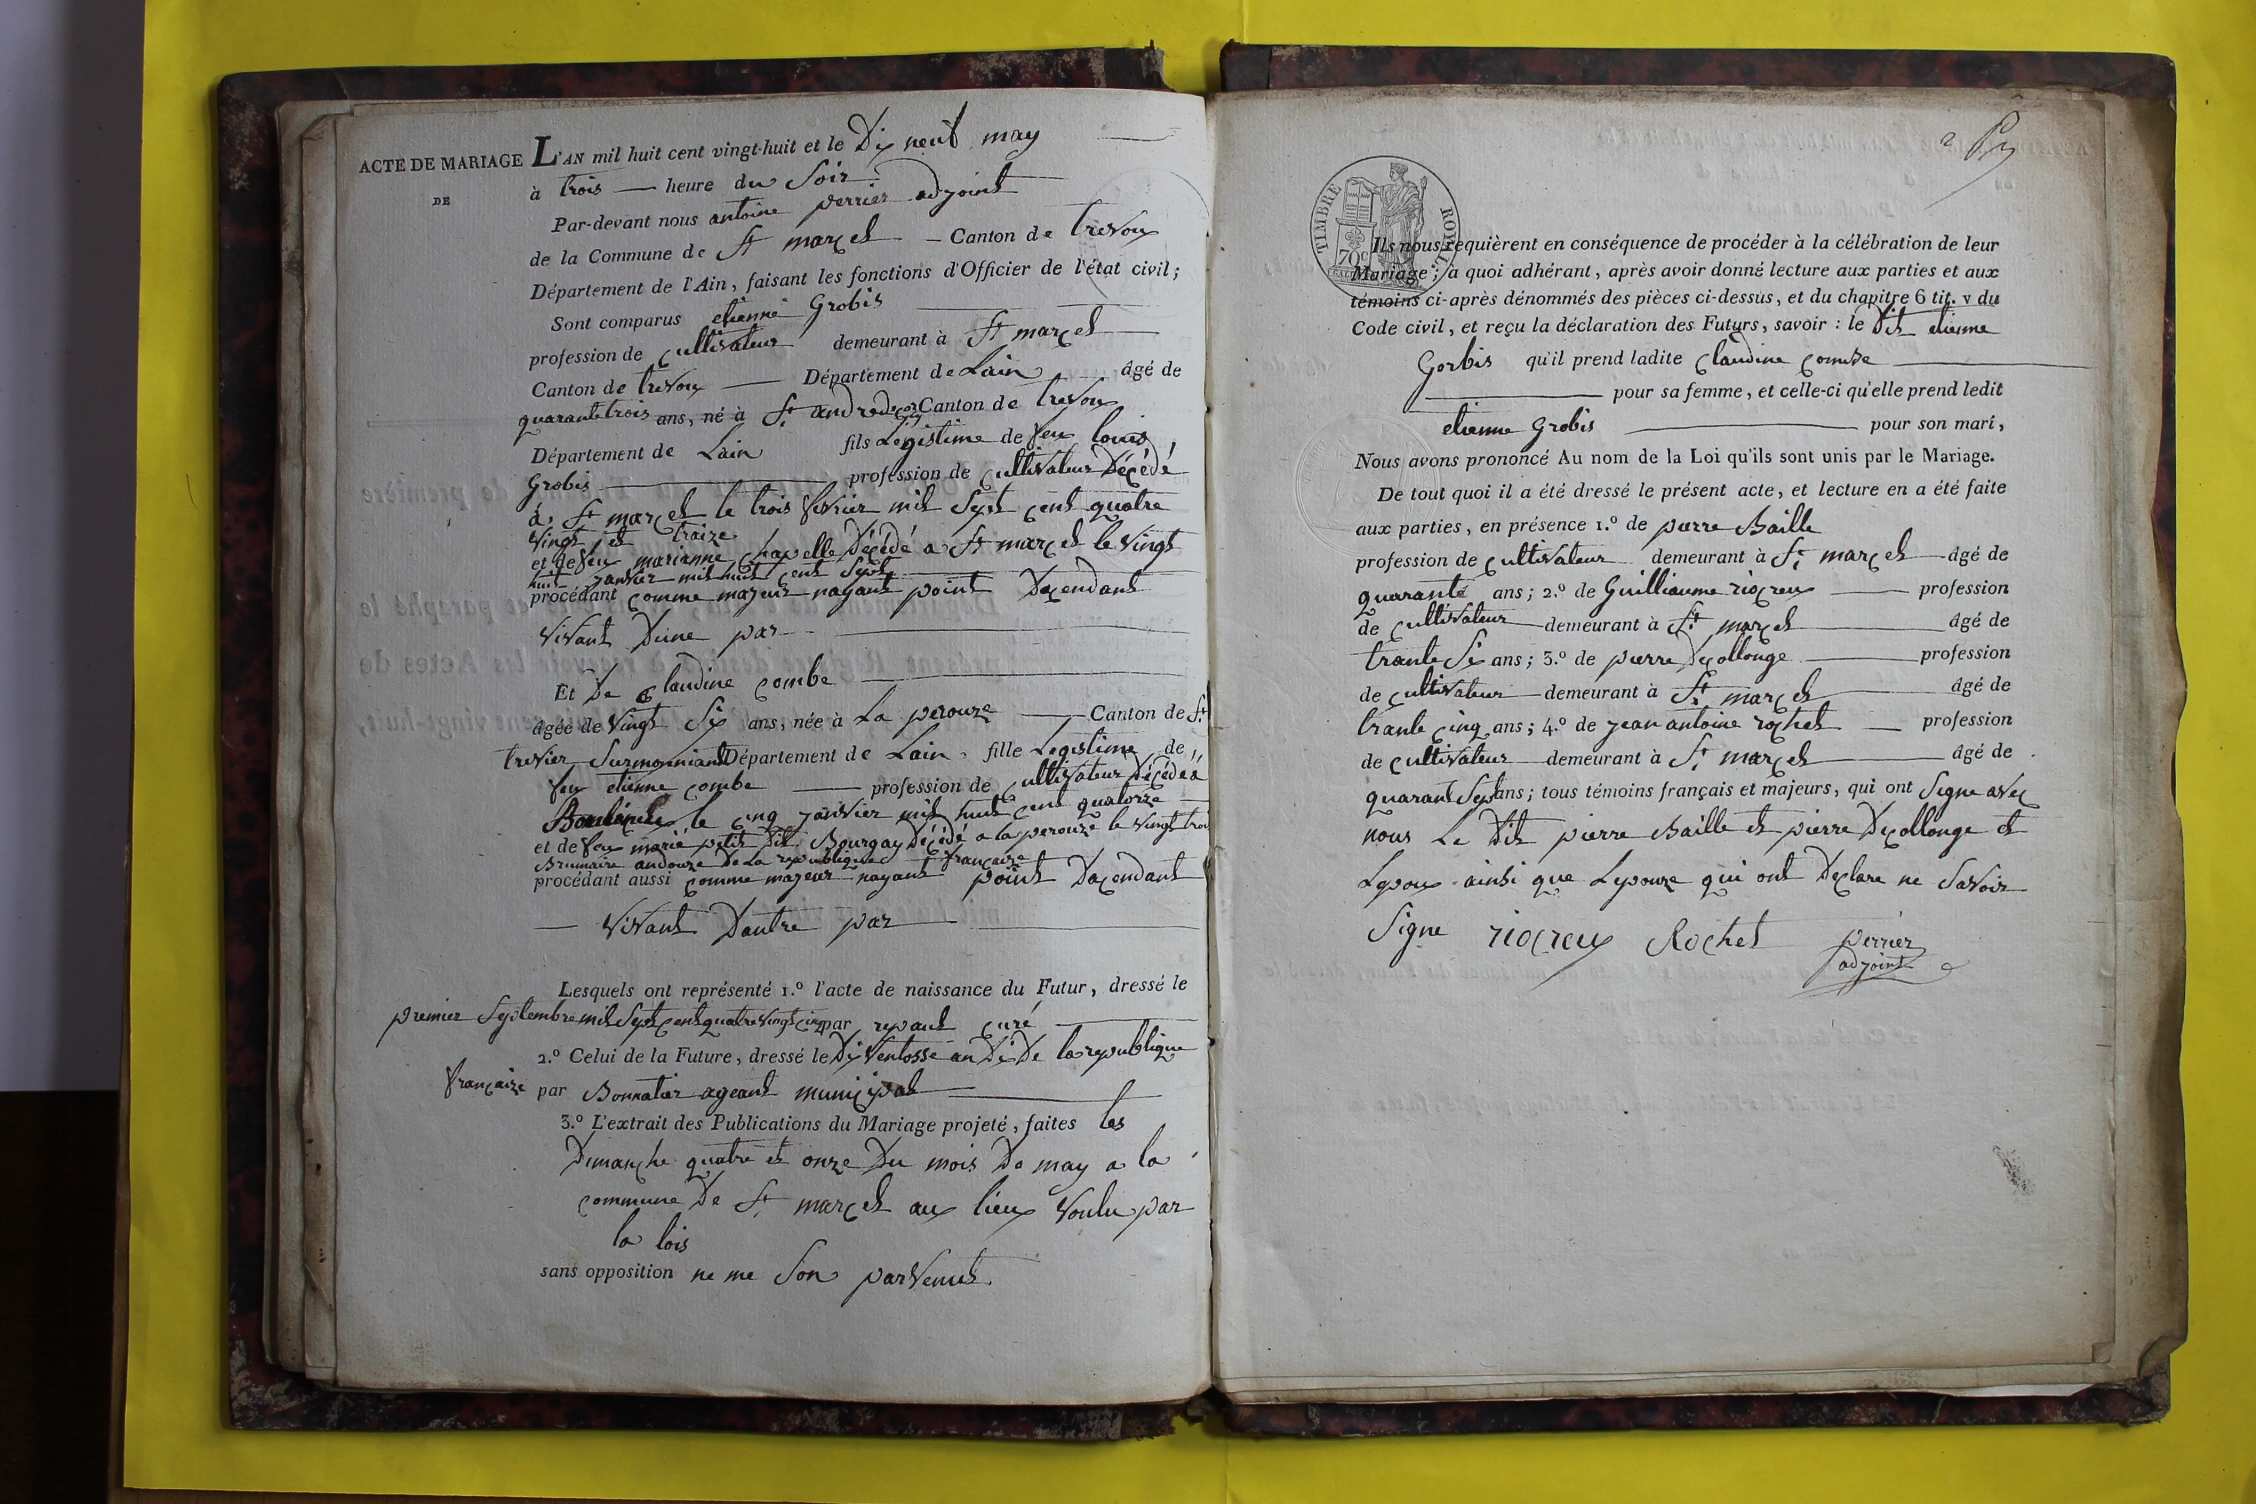 ACTE DE MARIAGE
DE
L'AN mil huit cent vingt-huit et le Dix neuf may
à trois heure du Soir
Par-devant nous antoine perrier adjoint
de la Commune de St marcel Canton de trevoux
Département de l'Ain, faisant les fonctions d'Officier de l'état civil;
Sont comparus etienne Grobis
profession de cultivateur demeurant à St marcel
Canton de trevoux Département de Lain âgé de
quarante trois ans, né à St andredecorcy Canton de trevoux
Département de Lain fils Legistime de feu louis
Grobis profession de cultivateur Décédé
á St marcel le trois fevrier mil Sept cent quatre
vingt et traize
et de feu marianne chapelle Décédé a St marcel le vingt
huit janvier mil huit cent Sept
procédant comme majeur nayant point Dacendant
vivant Dune par
Et De claudine combe
âgée de vingt Six ans, née à La perouze Canton de St
trevier Surmonniant Département de Lain fille Legistime de
feu etienne combe profession de cultivateur Décédé á
le cinq janvier mil huit cent quatorze
et de feu marie petit dit Bourgay Décédé a la perouze le vingt trois
Brumaire an douze De La republique françaize
procédant aussi comme majeur nayant point Dacendant
vivant Dautre par
Lesquels ont représenté 1.º l'acte de naissance du Futur, dressé le
premier Septembre mil Sept cent quatre vingt cinq par repaut curé
2.º Celui de la Future, dressé le Dix ventosse an Dix De la republique
françaize par Bonnatier ageant municipal
3.º L'extrait des Publications du Mariage projeté, faites les
Dimanche quatre et onze Du mois De may a la
commune De St marcel aux lieux voulu par
la lois
sans opposition ne me Son parvenut
2
TIMBRE ROYAL
70c
Ils nous requièrent en conséquence de procéder à la célébration de leur
Mariage; à quoi adhérant, après avoir donné lecture aux parties et aux
témoins ci-après dénommés des pièces ci-dessus, et du chapitre 6 tit. v du
Code civil, et reçu la déclaration des Futurs, savoir: le Dit etienne
Gorbis qu'il prend ladite claudine combe
pour sa femme, et celle-ci qu'elle prend ledit
etienne Grobis pour son mari,
Nous avons prononcé Au nom de la Loi qu'ils sont unis par le Mariage.
De tout quoi il a été dressé le présent acte, et lecture en a été faite
aux parties, en présence 1.º de pierre Baille
profession de cultivateur demeurant à St marcel âgé de
quarante ans; 2.º de Guilliaume riocreux profession
de cultivateur demeurant à St marcel âgé de
trante Six ans; 3.º de pierre Decollonge profession
de cultivateur demeurant à St marcel âgé de
trante cinq ans; 4.º de jean antoine rochet profession
de cultivateur demeurant à St marcel âgé de
quarant Sept ans; tous témoins français et majeurs, qui ont Signe avec
nous Le Dit pierre Baille et pierre Decollonge et
Lepoux ainsi que Lepouze qui ont Declare ne Savoir
Signe riocreux Rochet perrier
adjoint